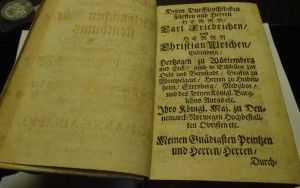 Denen Durchläuchtigsten
Fürsten und Herren
HERRN
Carl Friedrichen,
und
HERRN
Christian Ulrichen,
Gebrüdern,
Hertzogen zu Würtenberg
und Teck, auch in Schlesien zu
Oels und Bernstadt, Grafen zu
Mömpelgart, Herren zu Heiden-
heim, Sternberg, Medzibor,
und des Freyen Königl. Burg-
lehns Auras etc.
Ihro Königl. Maj. zu Den-
nemarck-Norwegen Hochbestall-
ten Obristen etc.
Meinen Gnädigsten Printzen
und Herren, Herren,
Durch-